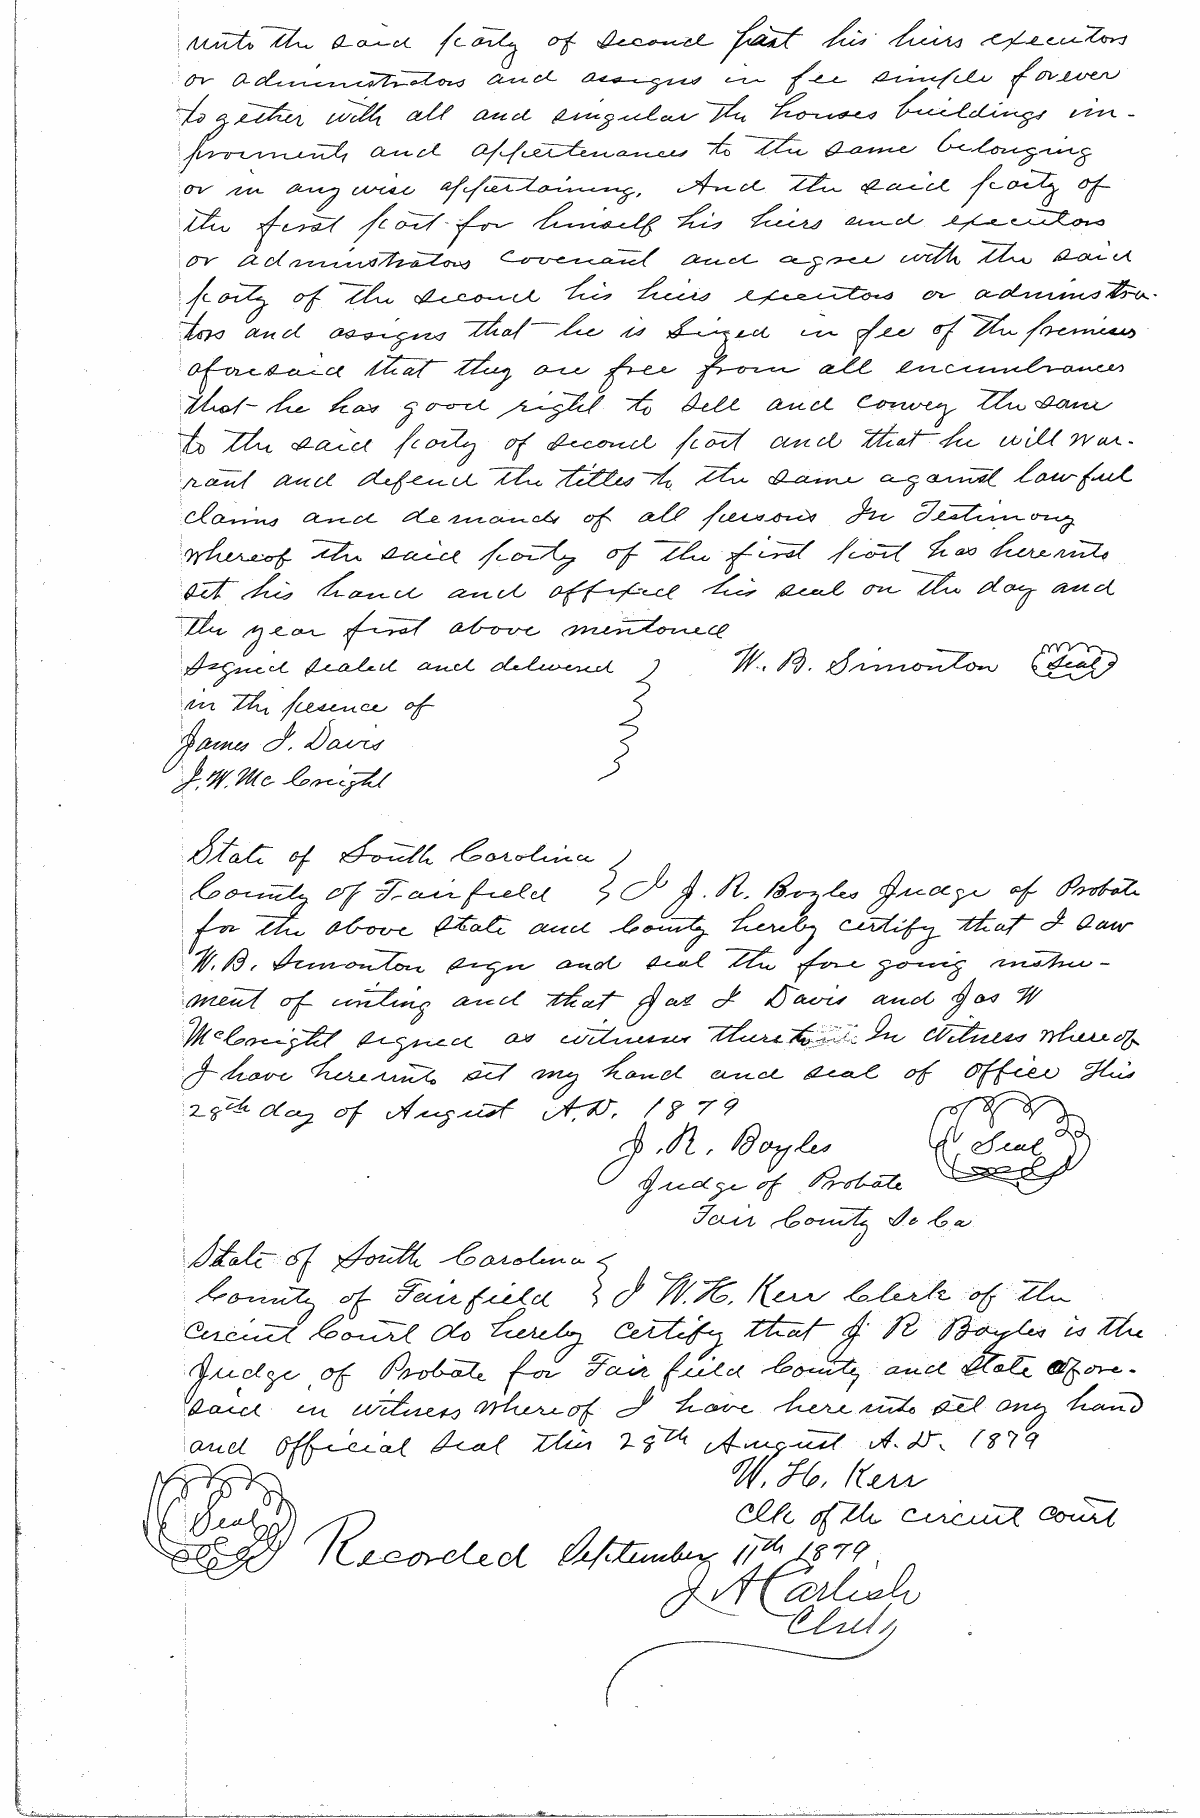 unto the said party of second part his heirs executors
or administrators and assigns in fee simple forever
together with all and singular the houses buildings im-
provments and appertenances to the same belonging
or in any wise appertaining. And the said party of
the first part for himself his heirs and executors
or administrators covenant and agree with the said
party of the second his heirs executors or administra-
tors and assigns that he is sized in fee of the premises
aforesaid that they are free from all encumbrances
that he has good right to sell and convey the same
to the said party of second part and that he will war-
rant and defend the titles to the same against lawful
claims and demands of all persons In Testimony
whereof the said party of the first part has hereunto
set his hand and affixed his seal on the day and
the year first above mentoned
Signed sealed and delivered W. B. Simonton Seal
in the pesence of
James I. Davis
J. W. McCreight
State of South Carolina
County of Fairfield I J. R. Boyles Judge of Probate
for the above State and County hereby certify that I saw
W. B. Simonton sign and seal the fore going instru-
ment of writing and that Jas I Davis and Jas W
McCreight signed as witnesses thereto In Witness whereof
I have hereunto set my hand and seal of office this
28th day of August A.D. 1879
J. R. Boyles Seal
Judge of Probate
Fair County So Ca
State of South Carolina
County of Fairfield I W. H. Kerr Clerk of the
circuit Court do hereby certify that J R Boyles is the
Judge of Probate for Fair field County and State afore-
said in witness whereof I have here unto set my hand
and official seal this 28th August A.D. 1879
W. H. Kerr
Seal clk of the circuit court
Recorded September 11th 1879
J A Carlisle
Clerk